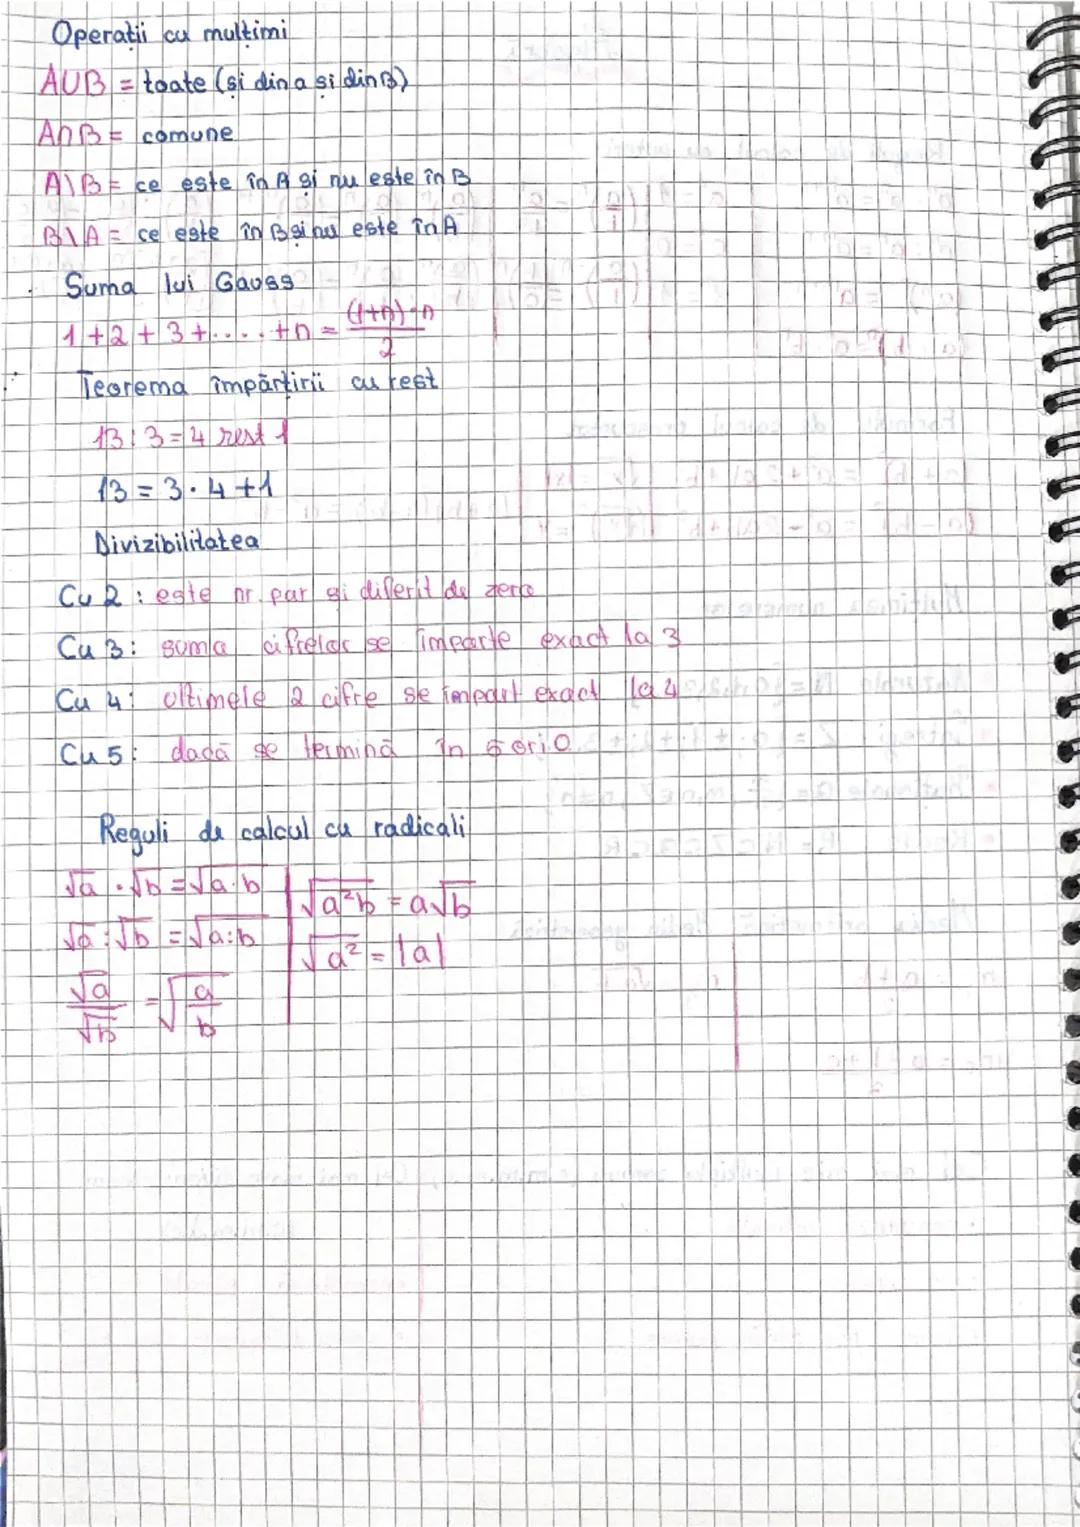 Operații cu mulțimi
A∪B = toate (și din a și din B)
A∩B = comune
A\B = ce este în A și nu este în B
B\A = ce este în B și nu este în A
Suma lui Gauss
1+2+3+.....+n = (1+n)·n / 2
Teorema împărțirii cu rest
13:3=4 rest 1
13=3·4+1
Divizibilitatea
Cu 2: este nr. par și diferit de zero
Cu 3: suma cifrelor se împarte exact la 3
Cu 4: ultimele 2 cifre se împart exact la 4
Cu 5: dacă se termină în 5 ori 0
Reguli de calcul cu radicali
√a · √b = √a·b
√a : √b = √a:b
√a / √b = √a/b
√a²b = a√b
√a² = |a|